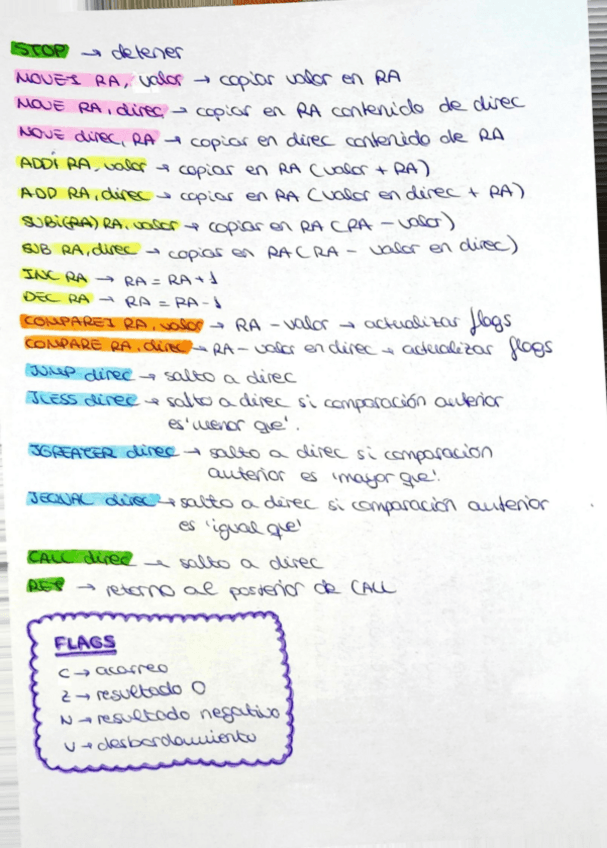 STOP → detener
MOVEI RA, valor → copiar valor en RA
MOVE RA, direc → copiar en RA contenido de direc
MOVE direc, RA → copiar en direc contenido de RA
ADDi RA, valor → copiar en RA (valor + RA)
ADD RA, direc → copiar en RA (valor en direc + RA)
SUBi(RA) RA, valor → copiar en RA (RA - valor)
SUB RA, direc → copiar en RA (RA - valor en direc)
INC RA → RA = RA + 1
DEC RA → RA = RA - 1
COMPAREI RA, valor → RA - valor → actualizar flags
COMPARE RA, direc → RA - valor en direc → actualizar flags
JUMP direc → salto a direc
JLESS direc → salto a direc si comparación anterior
es 'menor que'.
JGREATER direc → salto a direc si comparación
anterior es 'mayor que'.
JEQUAL direc → salto a direc si comparación anterior
es 'igual que'
CALL direc → salto a direc
RET → retorno al posterior de CALL
FLAGS
C → acarreo
Z → resultado 0
N → resultado negativo
V → desbordamiento